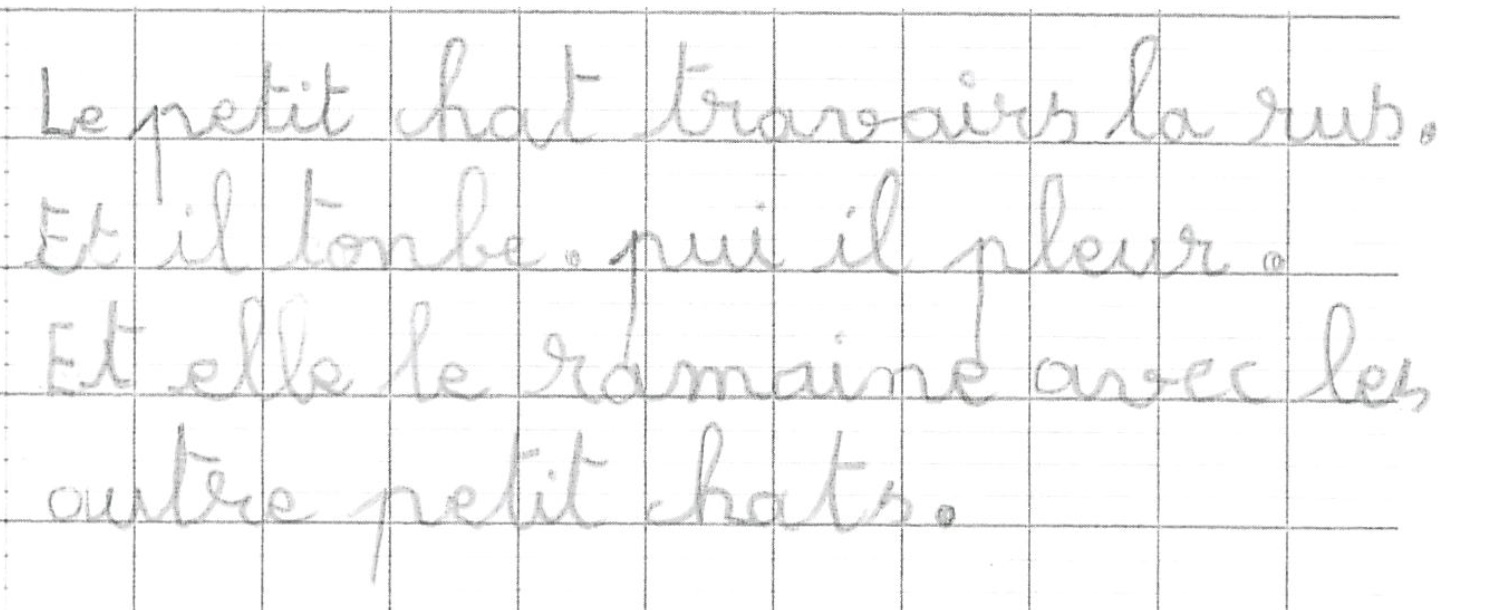 Le petit chat travairs la rus.
Et il tonbe. pui il pleur.
Et elle le ramaine avec les
autre petit chats.